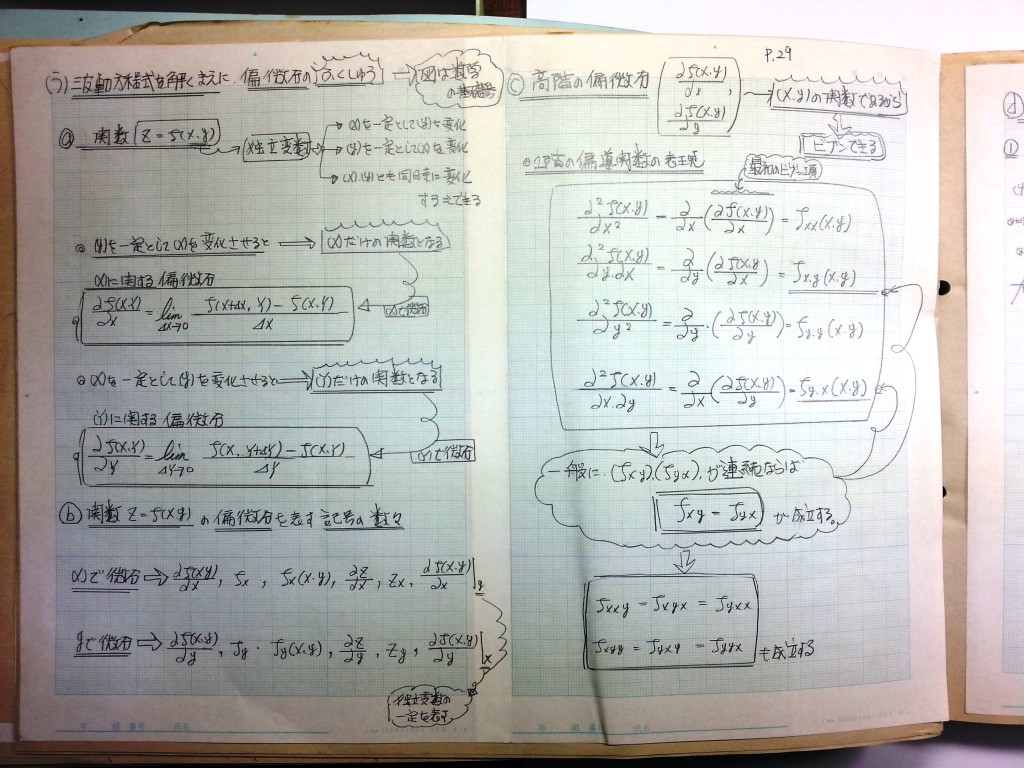 う) 波動方程式を解くまえに. 偏微分のふくしゅう → 図は数学の基礎
ⓐ 関数 Z = f(x.y)
独立変数 → (x)を一定として(y)を変化
→ (y)を一定として(x)を変化
→ (x).(y)とも同時に変化
する事できる
(y)を一定として(x)を変化させると → (x)だけの関数となる
(x)に関する偏微分
∂f(x.y)/∂x = lim Δx→0 f(x+Δx, y) - f(x.y) / Δx
(x)で微分
(x)を一定として(y)を変化させると → (y)だけの関数となる
(y)に関する偏微分
∂f(x.y)/∂y = lim Δy→0 f(x, y+Δy) - f(x.y) / Δy
(y)で微分
ⓑ 関数 Z = f(x.y) の偏微分を表す記号の数々
(x)で微分 ⇒ ∂f(x.y)/∂x , fx , fx(x.y), ∂z/∂x , Zx , ∂f(x.y)/∂x |y
yで微分 ⇒ ∂f(x.y)/∂y , fy . fy(x.y), ∂z/∂y , Zy , ∂f(x.y)/∂y |x
独立変数の
一定を表す
P.29
ⓒ 高階の偏微分 ∂f(x.y)/∂x , ∂f(x.y)/∂y → (x.y)の関数であるから
ビブンできる
2階の偏導関数の表現
最初のビブン
∂²f(x.y)/∂x² = ∂/∂x (∂f(x.y)/∂x) = fxx(x.y)
∂²f(x.y)/∂y.∂x = ∂/∂y (∂f(x.y)/∂x) = fx.y(x.y)
∂²f(x.y)/∂y² = ∂/∂y . (∂f(x.y)/∂y) = fy.y(x.y)
∂²f(x.y)/∂x.∂y = ∂/∂x (∂f(x.y)/∂y) = fy.x(x.y)
一般に. (fxy).(fyx). が連続ならば
fxy = fyx が成立する。
fxxy = fxyx = fyxx
fxyy = fyxy = fyyx も成立する
年 組 番号 氏名
年 組 番号 氏名
ⓓ